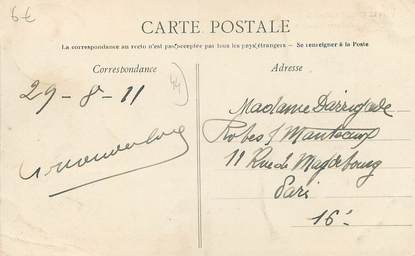 6€
CARTE POSTALE
La correspondance au recto n'est pas acceptée par tous les pays étrangers — Se renseigner à la Poste
Correspondance
Adresse
29-8-11
Madame Darrigade
Robes & Manteaux
11 Rue de Magdebourg
Paris
16e